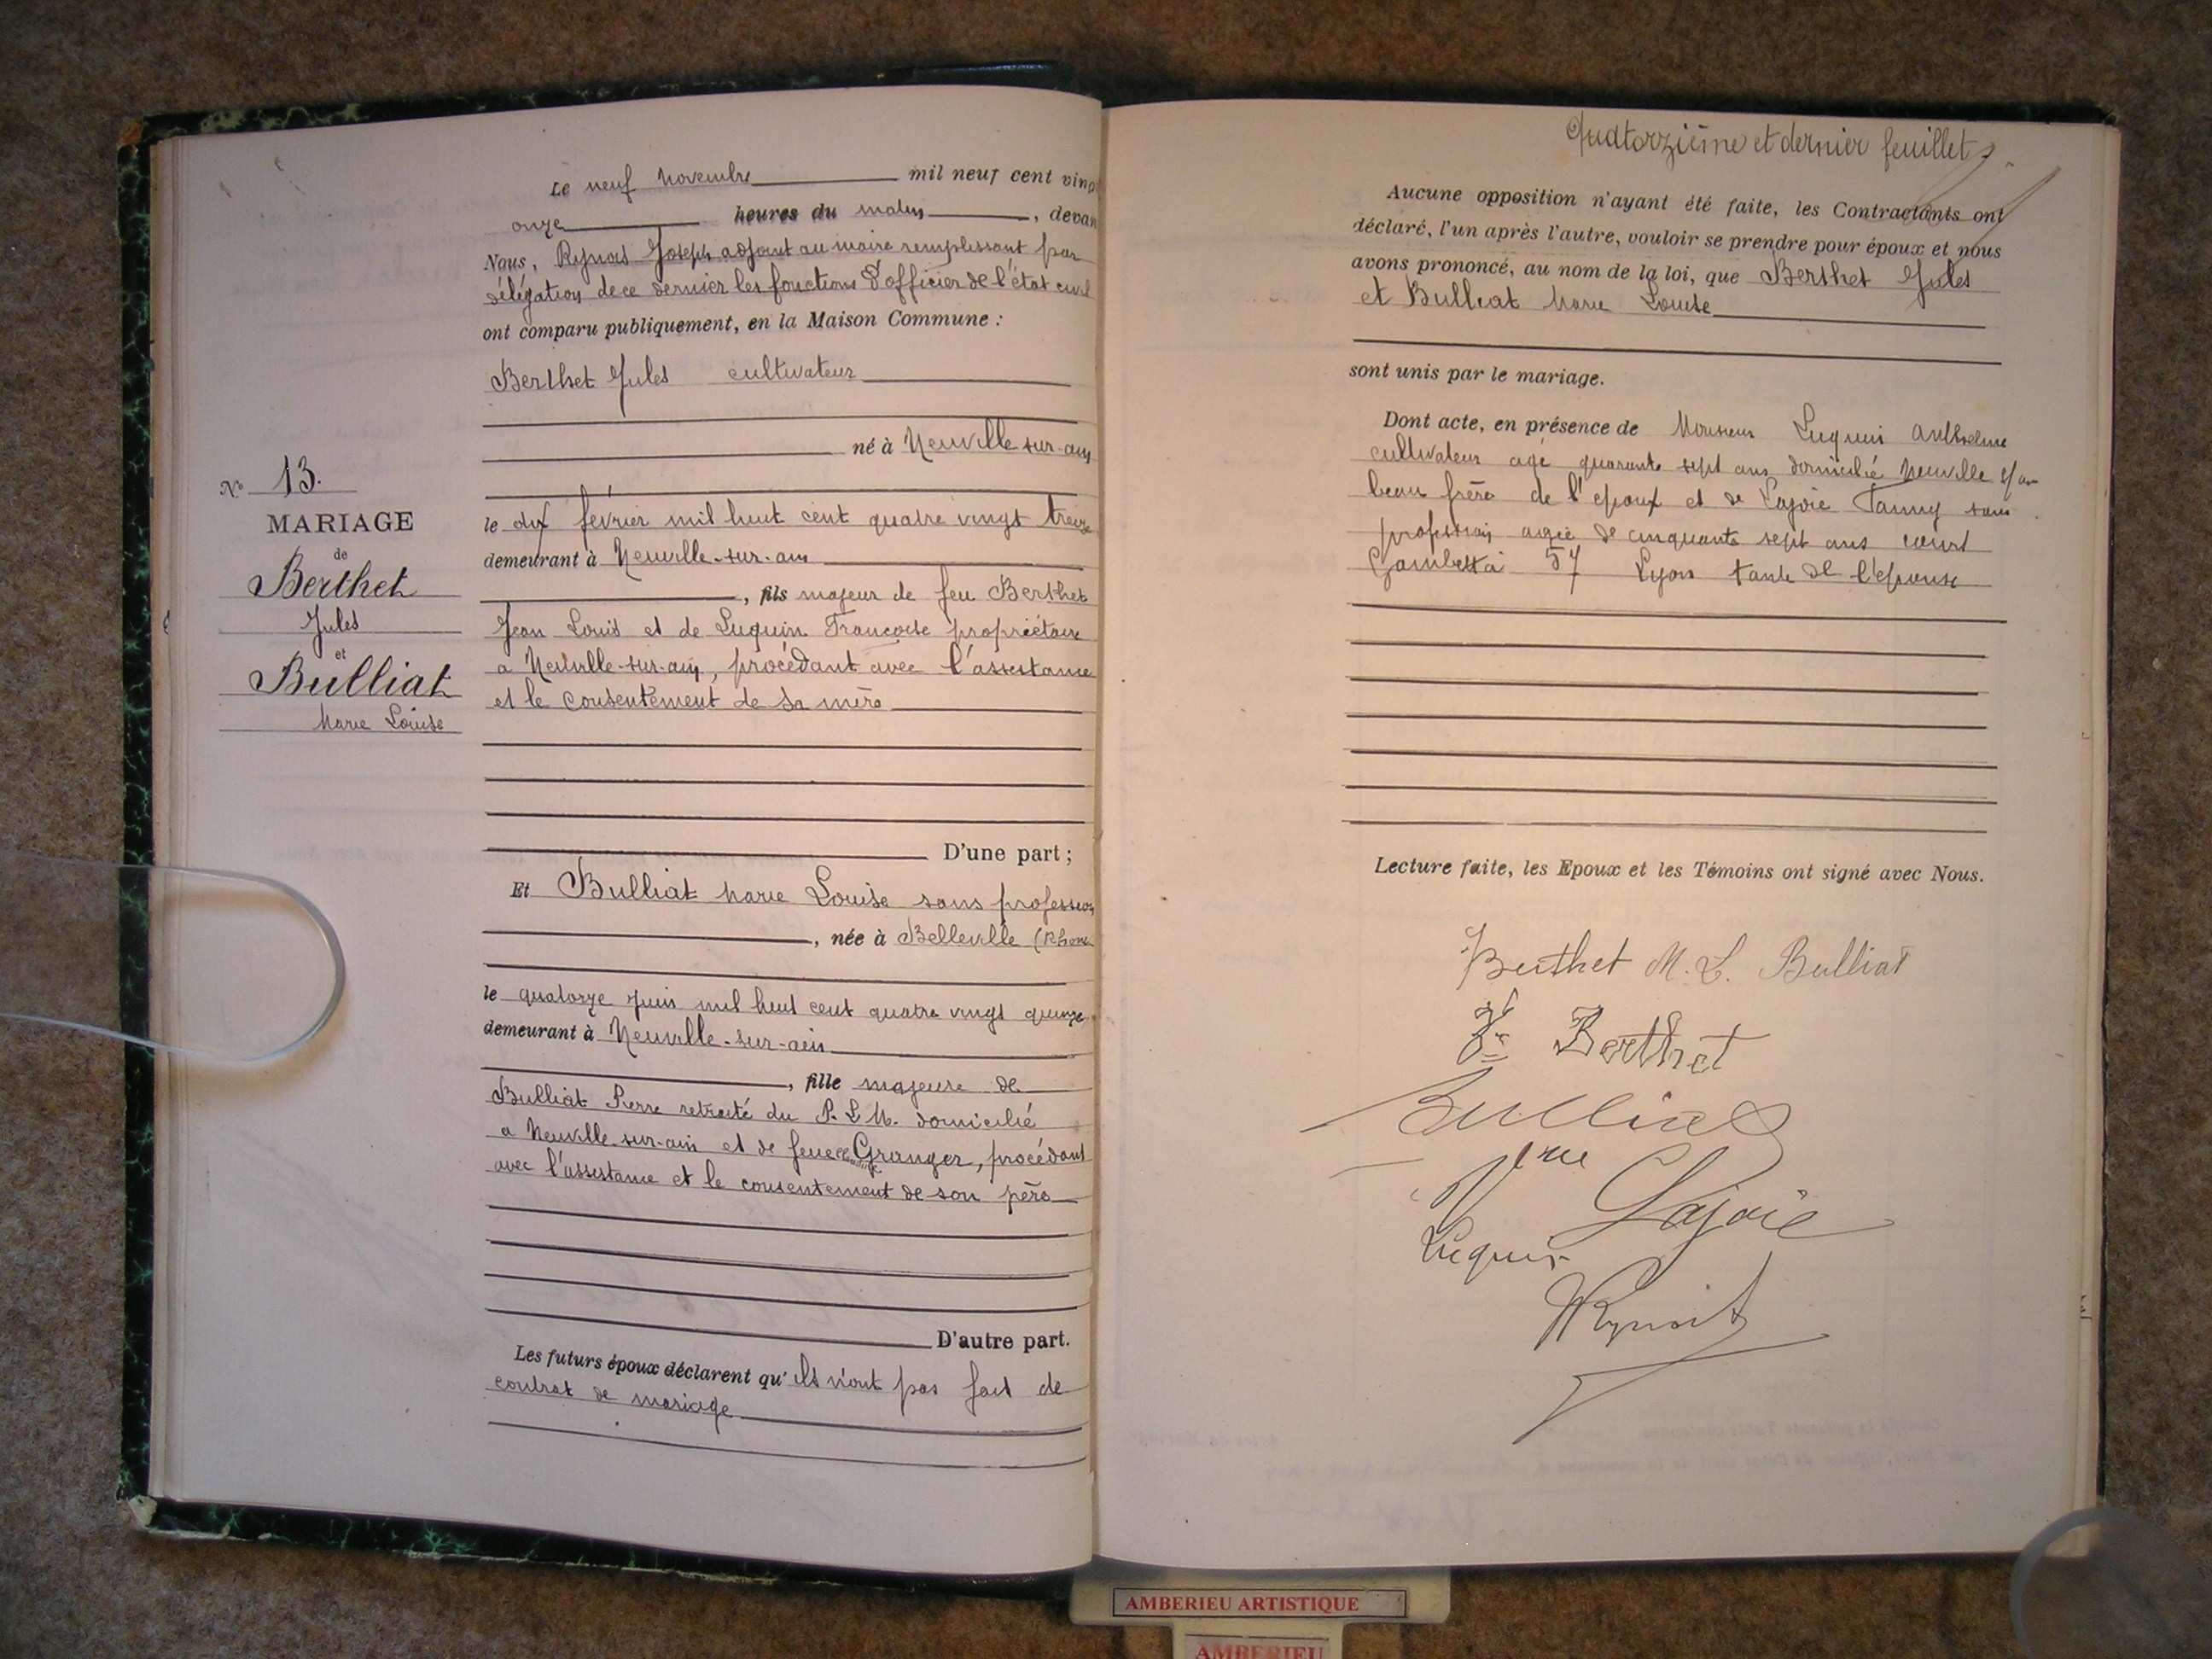 Le neuf novembre mil neuf cent vingt
onze heures du matin, devan
Nous, Joseph adjoint au maire remplissant par
délégation de ce dernier les fonctions d'officier de l'état civil
ont comparu publiquement, en la Maison Commune :
Berthet Jules cultivateur
né à Neuville-sur-ain
le dix février mil huit cent quatre vingt treize
demeurant à Neuville-sur-ain
, fils majeur de feu Berthet
Jean Louis et de Luquin Françoise propriétaire
a Neuville-sur-ain, procédant avec l'assistance
et le consentement de sa mère
D'une part ;
N° 13.
MARIAGE
de
Berthet
Jules
et
Bulliat
Marie Louise
Et Bulliat Marie Louise sans profession
, née à Belleville (Rhone
le quatorze juin mil huit cent quatre vingt quinze
demeurant à Neuville-sur-ain
, fille majeure de
Bulliat Pierre retraité du P. L. M. domicilié
a Neuville-sur-ain et de feue Granger, procédant
avec l'assistance et le consentement de son père
D'autre part.
Les futurs époux déclarent qu' ils n'ont pas fait de
contrat de mariage
Quatorzième et dernier feuillet
Aucune opposition n'ayant été faite, les Contractants ont
déclaré, l'un après l'autre, vouloir se prendre pour époux et nous
avons prononcé, au nom de la loi, que Berthet Jules
et Bulliat Marie Louise
sont unis par le mariage.
Dont acte, en présence de Monsieur Luquin Anthelme
cultivateur agé quarante sept ans domicilié Neuville s/ain
beau frère de l'epoux et de Lajoie Fanny sans
profession agée de cinquante sept ans cours
Gambetta 57 Lyon tante de l'epouse
Lecture faite, les Epoux et les Témoins ont signé avec Nous.
Berthet M. L. Bulliat
Vve Berthet
Bulliat
Vve Lajoie
Luquin
AMBERIEU ARTISTIQUE
AMBERIEU